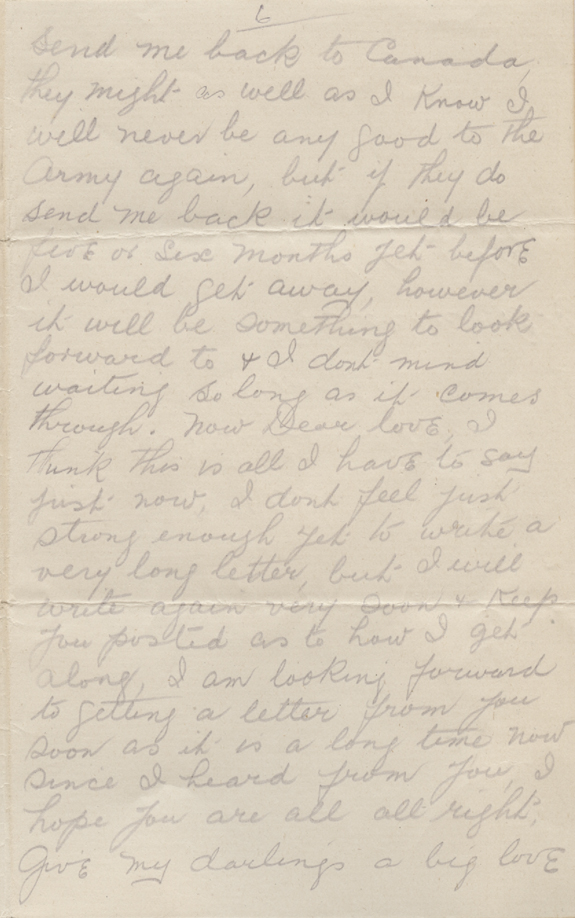 6
Send me back to Canada,
they might as well as I know I
will never be any good to the
Army again, but if they do
send me back it would be
five or six months yet before
I would get away, however
it will be something to look
forward to & I dont mind
waiting so long as it comes
through. Now Dear love, I
think this is all I have to say
just now, I dont feel just
strong enough yet to write a
very long letter, but I will
write again very soon & keep
you posted as to how I get
along, I am looking forward
to getting a letter from you
soon as it is a long time now
since I heard from you, I
hope you are all all right.
Give my darlings a big love